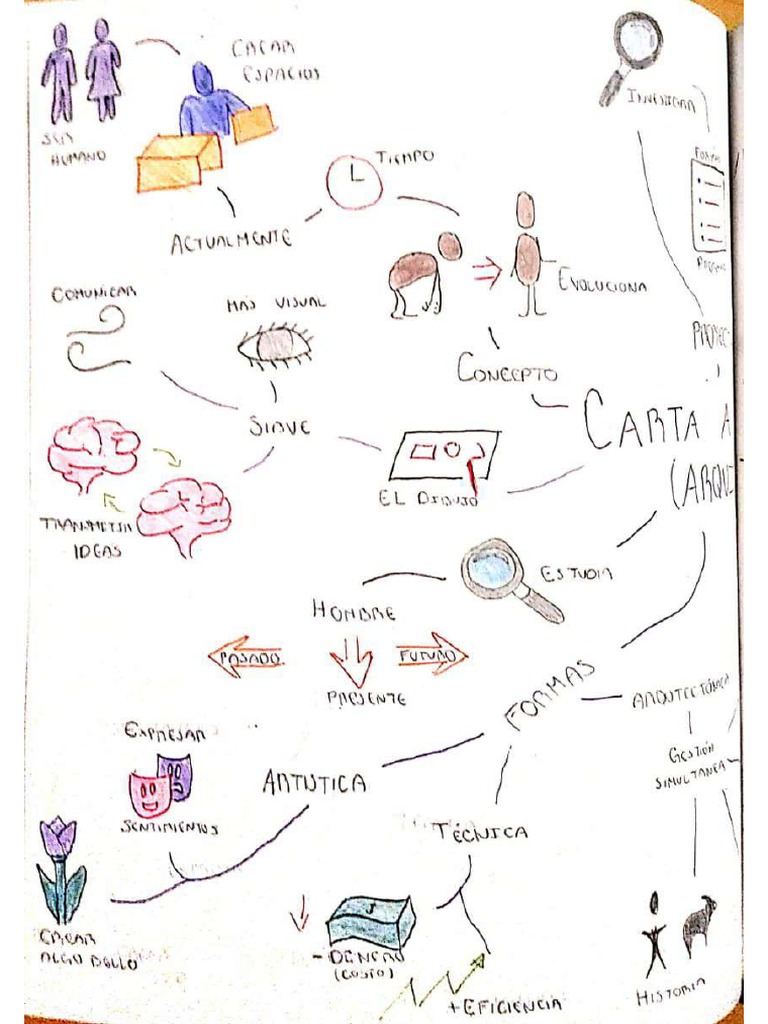 CREAR
ESPACIOS
SER
HUMANO
INVESTIGAR
TIEMPO
ACTUALMENTE
COMUNICAR
MÁS VISUAL
EVOLUCIONA
CONCEPTO
SIRVE
CARTA A
(ARQUI
EL DIBUJO
TRANSMITIR
IDEAS
ESTUDIA
HOMBRE
PASADO
FUTURO
PRESENTE
FORMAS
ARQUITECTÓNICA
GESTIÓN
SIMULTANEA
EXPRESAR
SENTIMIENTOS
ARTISTICA
TÉCNICA
CREAR
ALGO BELLO
- DINERO
(COSTO)
+ EFICIENCIA
HISTORIA